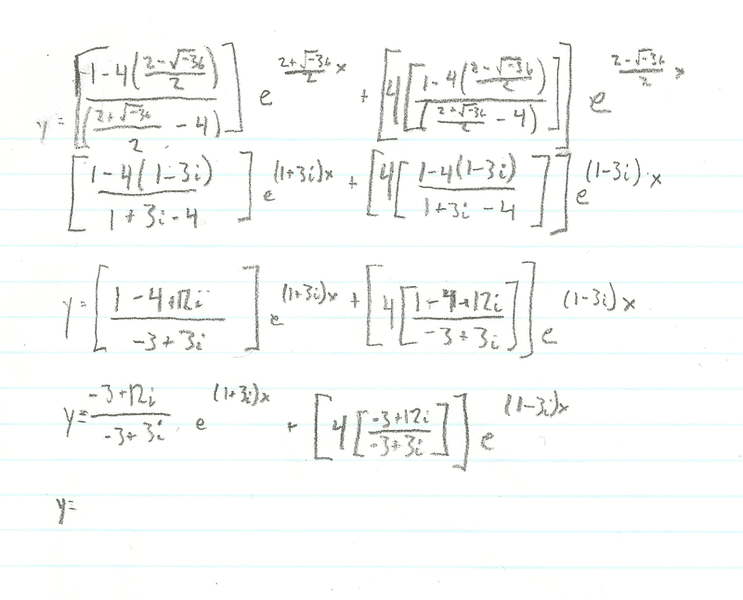 y = [(1-4((2-√-36)/2))/((2+√-36)/2 - 4)] e^((2+√-36)/2 x) + [4[(1-4((2-√-36)/2))/((2+√-36)/2 - 4)]] e^((2-√-36)/2 x)
[(1-4(1-3i))/(1+3i-4)] e^((1+3i)x) + [4[(1-4(1-3i))/(1+3i-4)]] e^((1-3i)·x)
y = [(1-4+12i)/(-3+3i)] e^((1+3i)x) + [4[(1-4+12i)/(-3+3i)]] e^((1-3i)x)
y = (-3+12i)/(-3+3i) e^((1+3i)x) + [4[(-3+12i)/(-3+3i)]] e^((1-3i)x)
y=